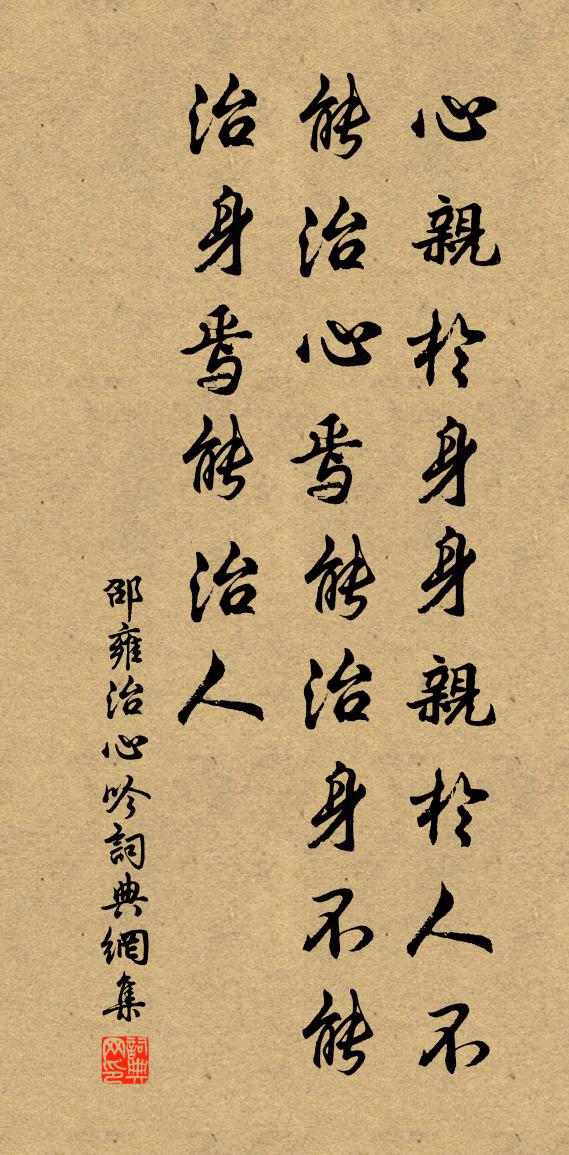 心親於身身親於人不
能治心焉能治身不能
治身焉能治人
邵雍治心吟詞典網集
詞典网印